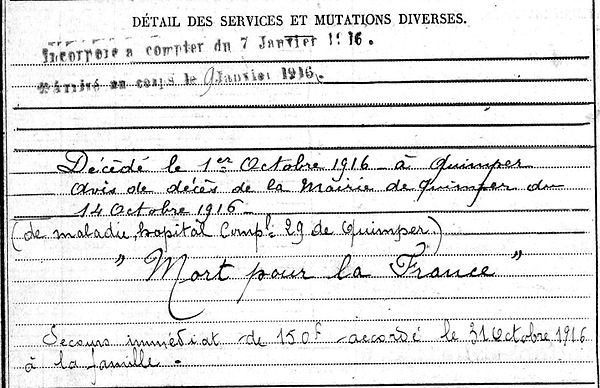 DÉTAIL DES SERVICES ET MUTATIONS DIVERSES.
Incorporé a compter du 7 Janvier 1916.
Arrivé au corps le 9 Janvier 1916.
Décédé le 1er Octobre 1916 à Quimper
avis de décès de la Mairie de Quimper du
14 Octobre 1916
(de maladie, hopital Compl: 29 de Quimper)
" Mort pour la France "
Secours immédiat de 150f accordé le 31 Octobre 1916
à la famille.